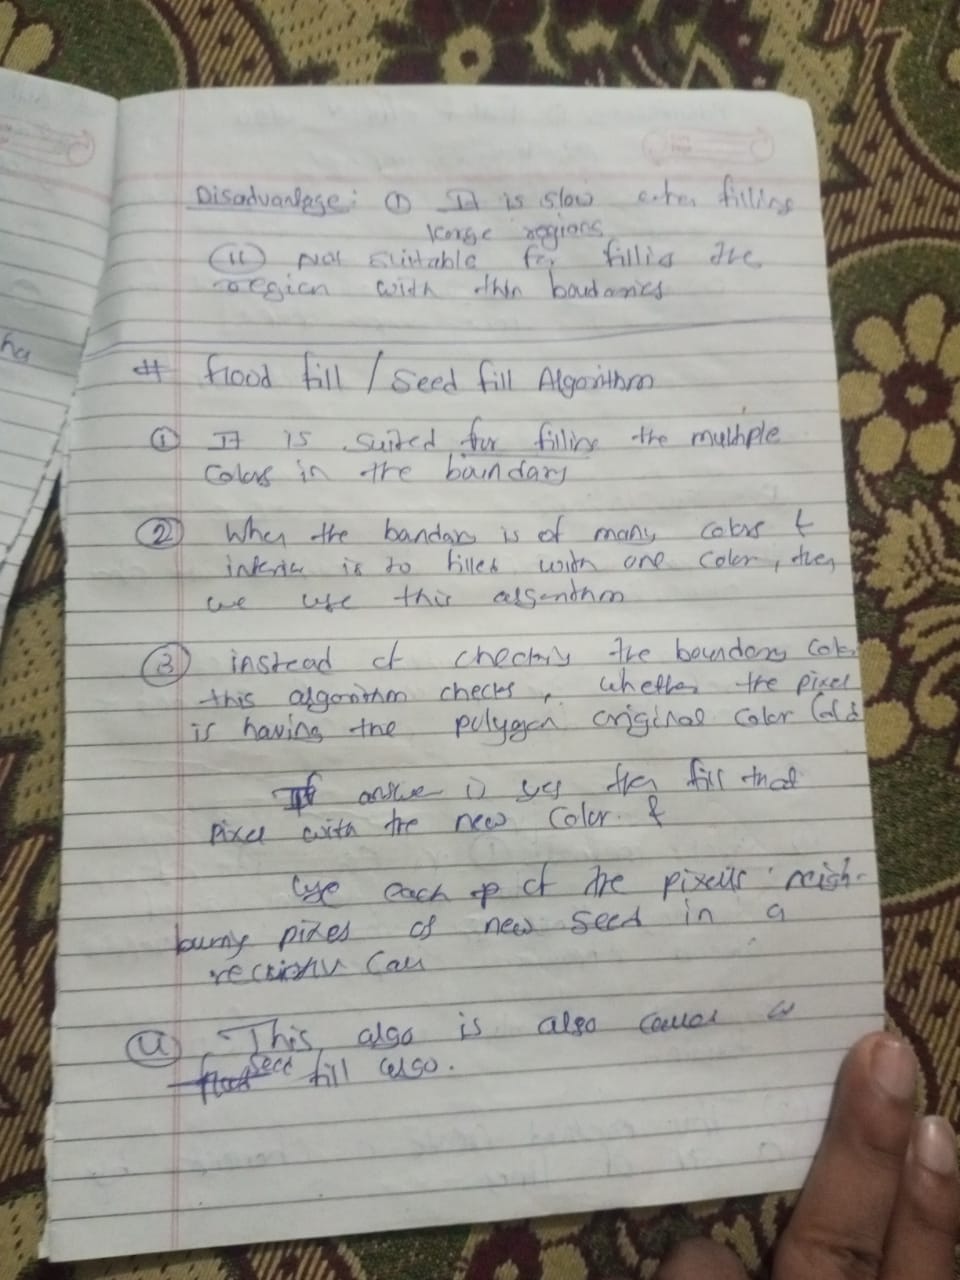 Disadvantage: ① It is slow when filling
large regions
(ii) Not suitable for filling the
region with thin boudaries
# flood fill / seed fill Algorithm
① It is suited for filling the multiple
Colors in the boundary
② When the bandary is of many colors &
interior is to filled with one color, then
we use this algorithm
③ instead of checking the boundary color
this algorithm checks, whether the pixel
is having the polygon original color
If answer is yes then fill that
pixel with the new color. &
Use each of the pixells neigh-
buring pixes as new seed in a
recursive call
④ This algo is also called
seed fill algo.